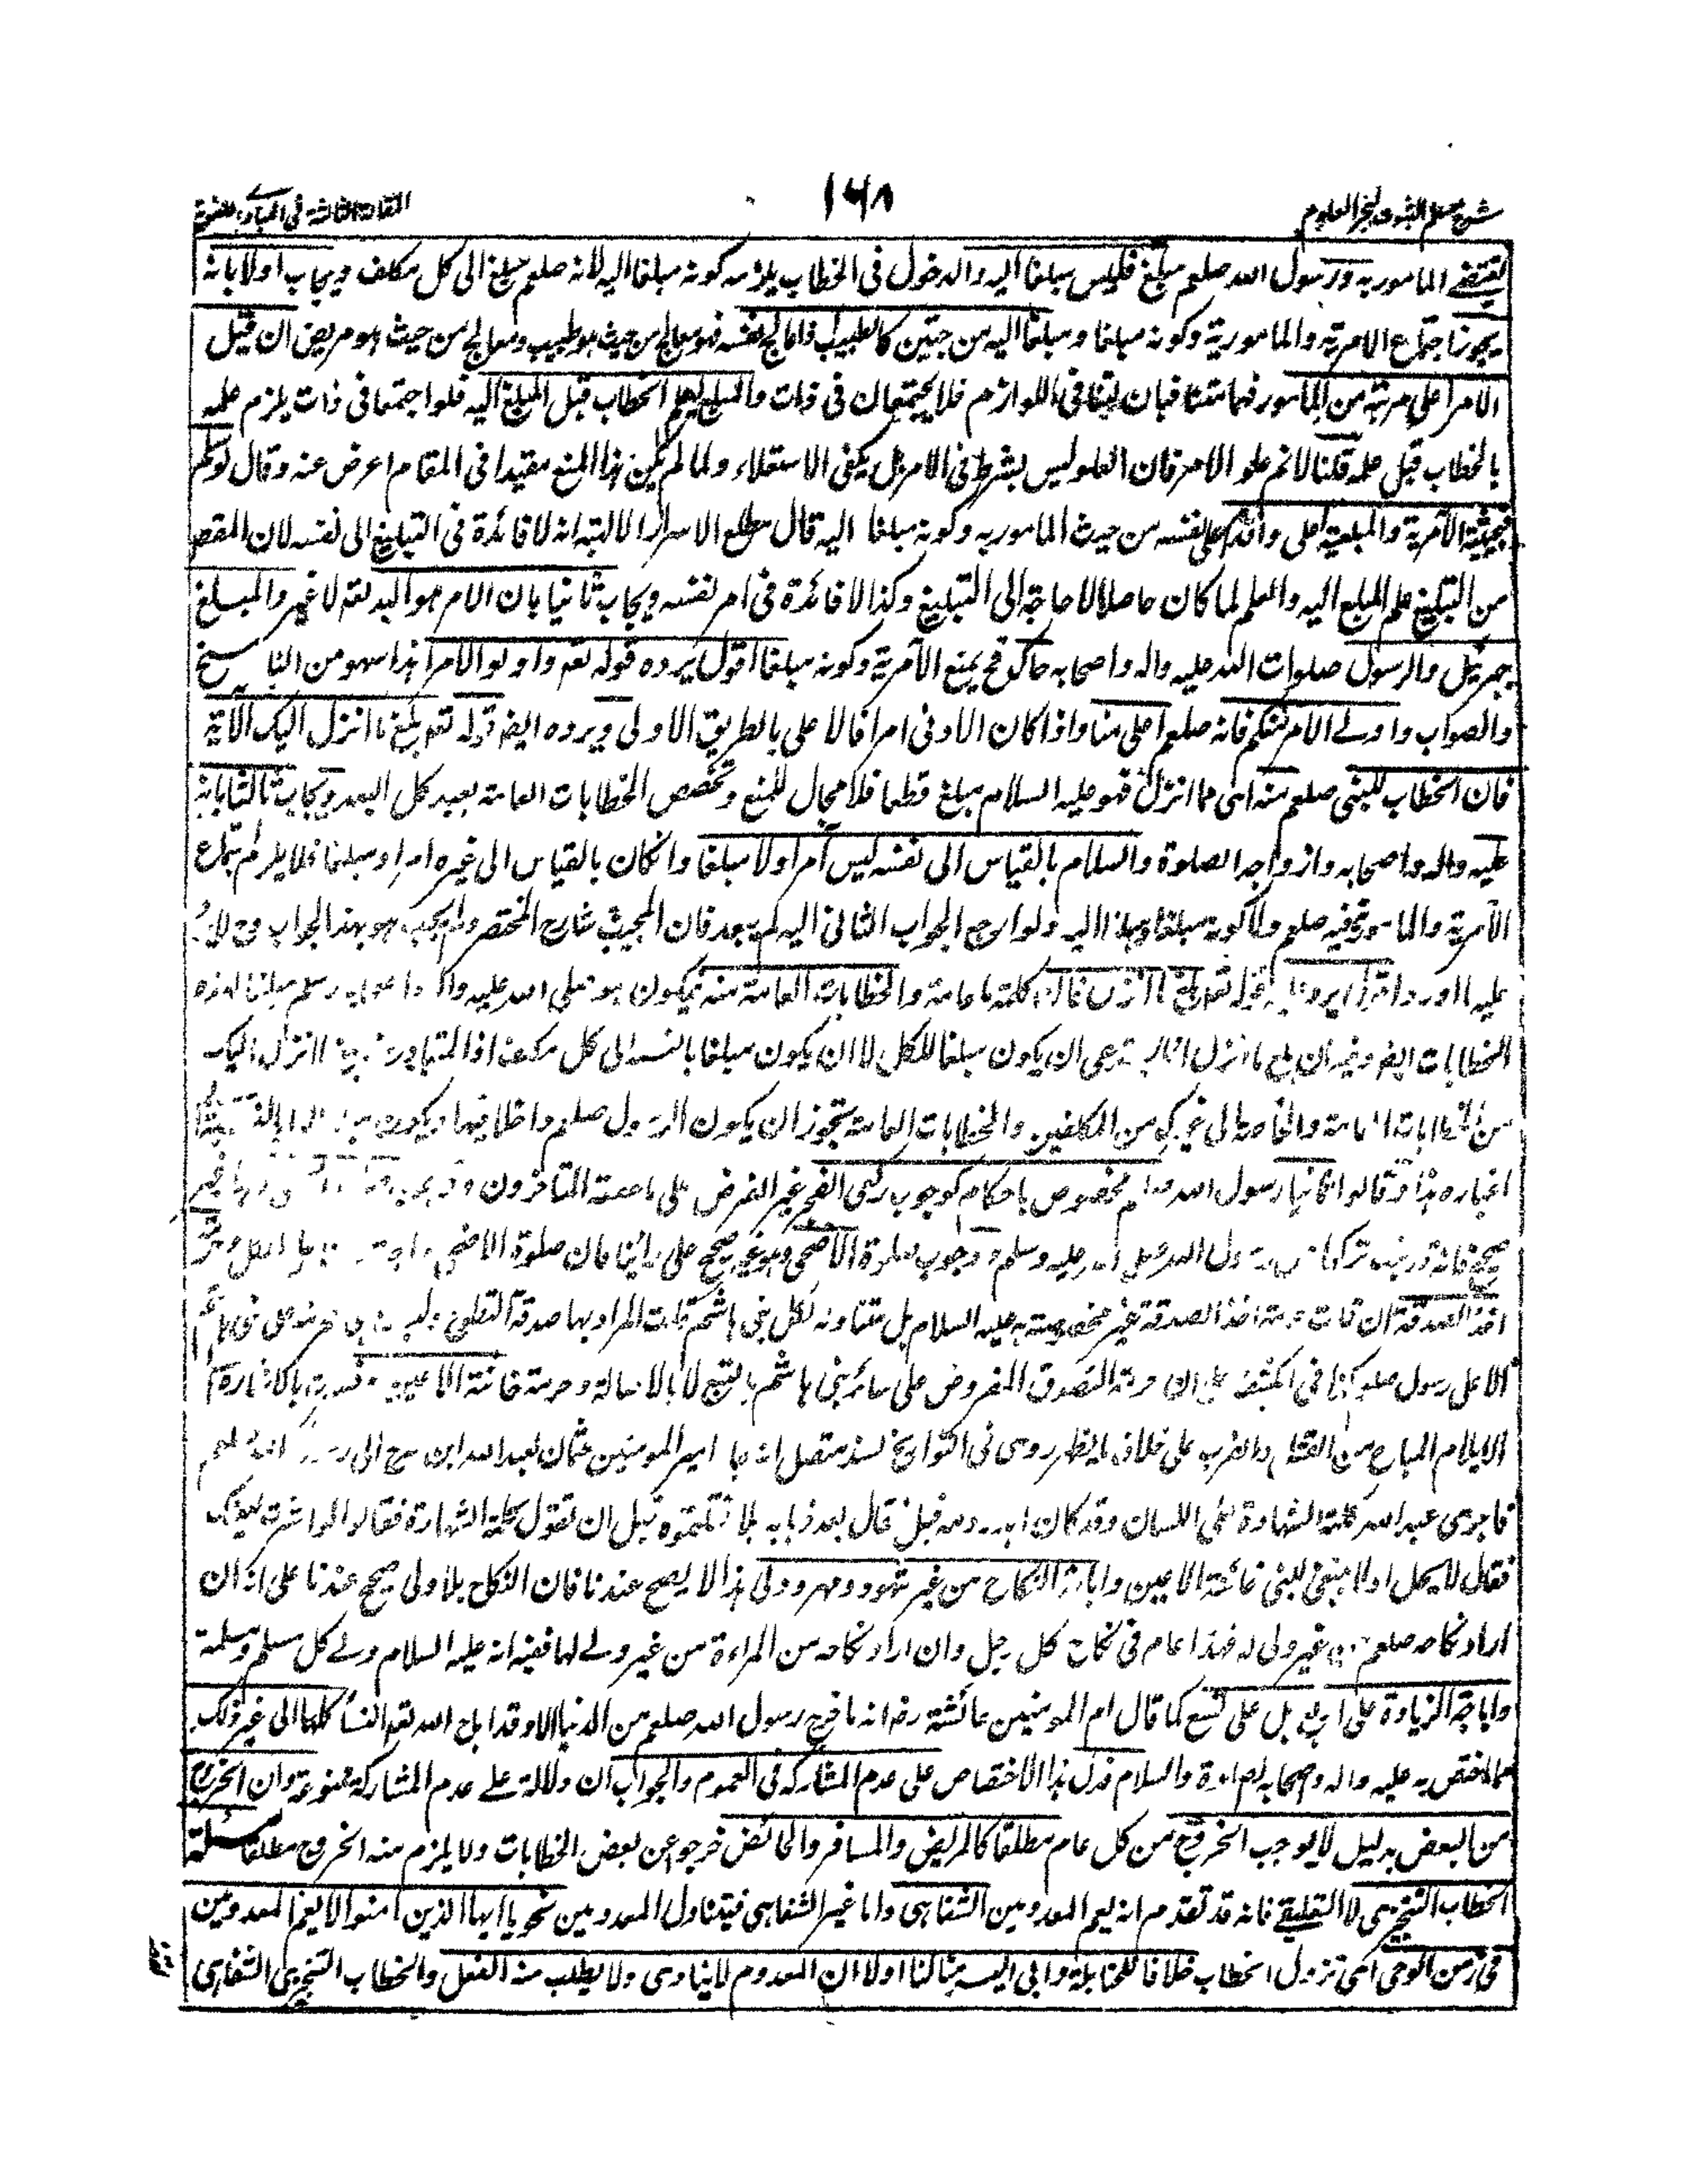 شرح مسلم الثبوت لبحر العلوم
١٦٨
المقالة الثالثة في المبادي اللغوية
تقتضي المامورية ورسول الله صلعم مبلغ فليس مبلغا اليه والدخول فى الخطاب يلزمه كونه مبلغا اليه لانه صلعم مبلغ الى كل مكلف ويجاب اولا بانه
يجوز اجتماع الامرية والمامورية وكونه مبلغا ومبلغا اليه من جهتين كالطبيب اذا عالج نفسه فهو معالج من حيث هو طبيب ومعالج من حيث هو مريض ان قيل
الامر اعلى مرتبة من المامور فهما متنافيان لتنافى اللوازم فلا يجتمعان فى ذات والمبلغ يعلم الخطاب قبل المبلغ اليه فلو اجتمعا فى ذات يلزم علمه
بالخطاب قبل علمه قلنا لا نم علو الامر فان العلو ليس بشرط فى الامر بل يكفى الاستعلاء ولما لم يكن هذا المنع مفيدا فى المقام اعرض عنه وقال لو سلم
فحيثية الآمرية والمبلغية اعلى واقدم على نفسه من حيث المامورية وكونه مبلغا اليه قال مطلع الاسرار الالهية انه لا فائدة فى التبليغ الى نفسه لان المقص
من التبليغ علم المبلغ اليه والعلم لما كان حاصلا لا حاجة الى التبليغ وكذا لا فائدة فى امر نفسه ويجاب ثانيا بان الامر هو الله تعم لا غير والمبلغ
جبرئيل والرسول صلوات الله عليه واله واصحابه حاك وح يمنع الآمرية وكونه مبلغا اقول يرده قوله تعم واولو الامر هذا سهو من الناسخ
والصواب واولے الامر منكم فانه صلعم اعلى منا واذا كان الادنى امرا فالاعلى بالطريق الاولى ويرده ايضا قوله تعم بلغ ما انزل اليك الآية
فان الخطاب للنبى صلعم منه اى مما انزل فهو عليه السلام مبلغ قطعا فلا مجال للمنع وتخصص الخطابات العامة بعيد كل البعد ويجاب ثالثا بانه
عليه واله واصحابه وازواجه الصلوة والسلام بالقياس الى نفسه ليس آمرا ولا مبلغا وان كان بالقياس الى غيره امرا ومبلغا فلا يلزم اجتماع
الآمرية والمامورية فيه صلعم ولا كونه مبلغا ومبلغا اليه ولو ارجع الجواب الثانى اليه لم يبعد فان المجيب شارح المختصر ولم يجب هو بهذا الجواب وح لا يرد
عليه ما اورد اقول يرده قوله تعم بلغ ما انزل فان كلمة ما عامة والخطابات العامة منه فيكون هو صلى الله عليه واله واصحابه وسلم مبلغا لهذه
الخطابات ايضا وفيه ان بلغ ما انزل انما يستدعى ان يكون مبلغا للكل لا ان يكون مبلغا بالنسبة الى كل مكلف اذ المتبادر منه بلغ ما انزل اليك
من الخطابات العامة والخاصة الى غيرك من المكلفين والخطابات العامة يتجوز ان يكون الرسول صلعم داخلا فيها ويكون
اخباره هذا وقالوا ثانيا رسول الله صلعم مخصوص باحكام كوجوب ركعتى الفجر غير الفرض على ما صححه المتاخرون
صحيح فانه قد ثبت تركها من رسول الله صلى الله عليه وسلم ووجوب صلوة الاضحى وهو غير صحيح على راينا فان صلوة الاضحى واجبة
اخذ الصدقة ان قلت حرمة اخذ الصدقة غير مخصوصة به عليه السلام بل متناولة لكل بنى هاشم قلت المراد بها صدقة التطوع
الا على رسول صلعم كذا فى الكشف على ان حرمة التصدق المفروض على سائر بنى هاشم بالتبع لا بالاصالة وحرمة خائنة الاعين فسرت بالاشارة
الايلام المباح من القتل والضرب على خلاف ما يظهر روى فى التواريخ بسند متصل انه جاء امير المومنين عثمان بعبد الله ابن سرح الى
فاجرى عبد الله كلمة الشهادة على اللسان وقد كان اهدر دمه قبل فقال بعد ذهابه هلا قتلتموه قبل ان تقول كلمة الشهادة فقالوا هلا اشرت بعينك
فقال لا يحل او لا ينبغى لنبى خائنة الاعين واباحة النكاح من غير شهود ومهر وولى هذا لا يصح عندنا فان النكاح بلا ولى صحيح عندنا على انه ان
اراد نكاحه صلعم من غير ولى له فهذا عام فى نكاح كل رجل وان اراد نكاحه من المراءة من غير ولے لها ففيه انه عليه السلام ولے كل مسلم ومسلمة
واباحة الزيادة على اربع بل على تسع كما قال ام المومنين عائشة رضه انه ما خرج رسول الله صلعم من الدنيا الا وقد اباح الله تعم النساء كلها الى غير ذلك
مما اختص به عليه واله وصحابه الصلوة والسلام فدل هذا الاختصاص على عدم المشاركة فى العموم والجواب ان دلالة على عدم المشاركة ممنوعة وان الخروج
من البعض بدليل لا يوجب الخروج من كل عام مطلقا كالمريض والمسافر والحائض خرجوا عن بعض الخطابات ولا يلزم منه الخروج مطلقا مسئلة
الخطاب التنجيزى لا التعليقے فانه قد تقدم انه يعم المعدومين الشفاهى واما غير الشفاهى فيتناول المعدومين نحو يا ايها الذين امنوا لا يعم المعدومين
فى زمن الوحى اى نزول الخطاب خلافا للحنابلة وابى اليسر منا لنا اولا ان المعدوم لا ينادى ولا يطلب منه الفعل والخطاب التنجيزى الشفاهى